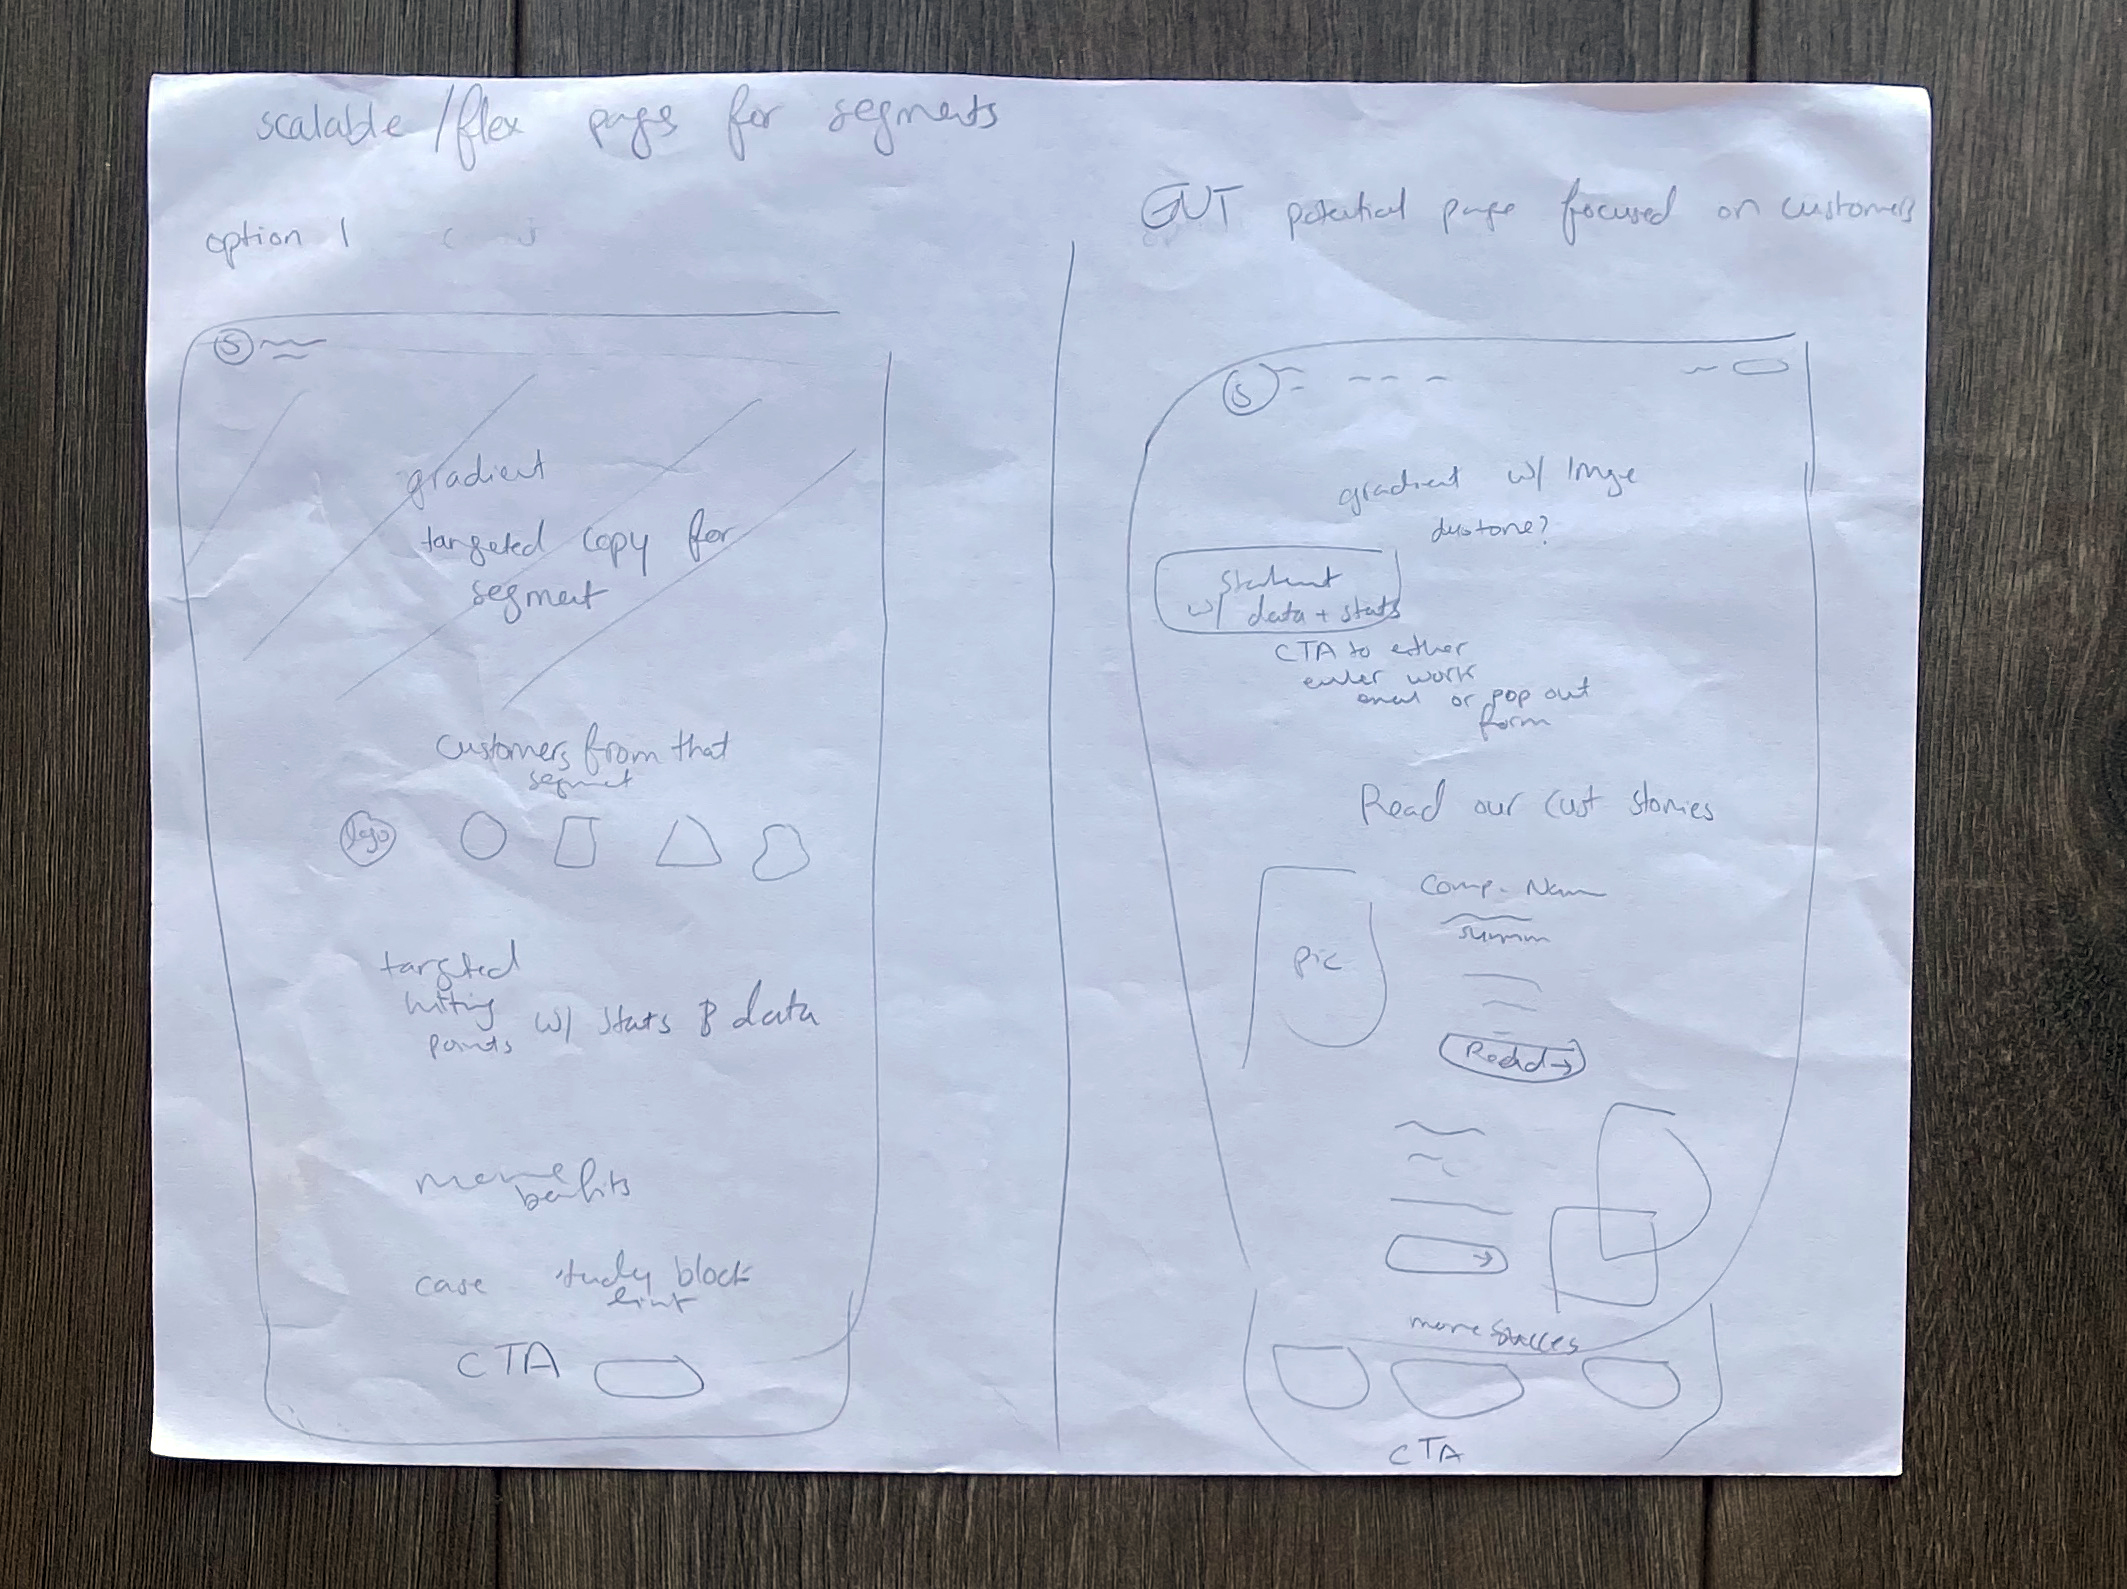 scalable/flex page for segments
option 1
S
gradient
targeted copy for
segment
customers from that
segment
logo
targeted
hitting
points w/ stats & data
more
benefits
case study block
CTA
GUT potential page focused on customers
S
gradient w/ image
duotone?
statement
w/ data + stats
CTA to either
enter work
email or pop out
form
Read our cust stories
pic
Comp. Name
summ
Read →
→
more
CTA